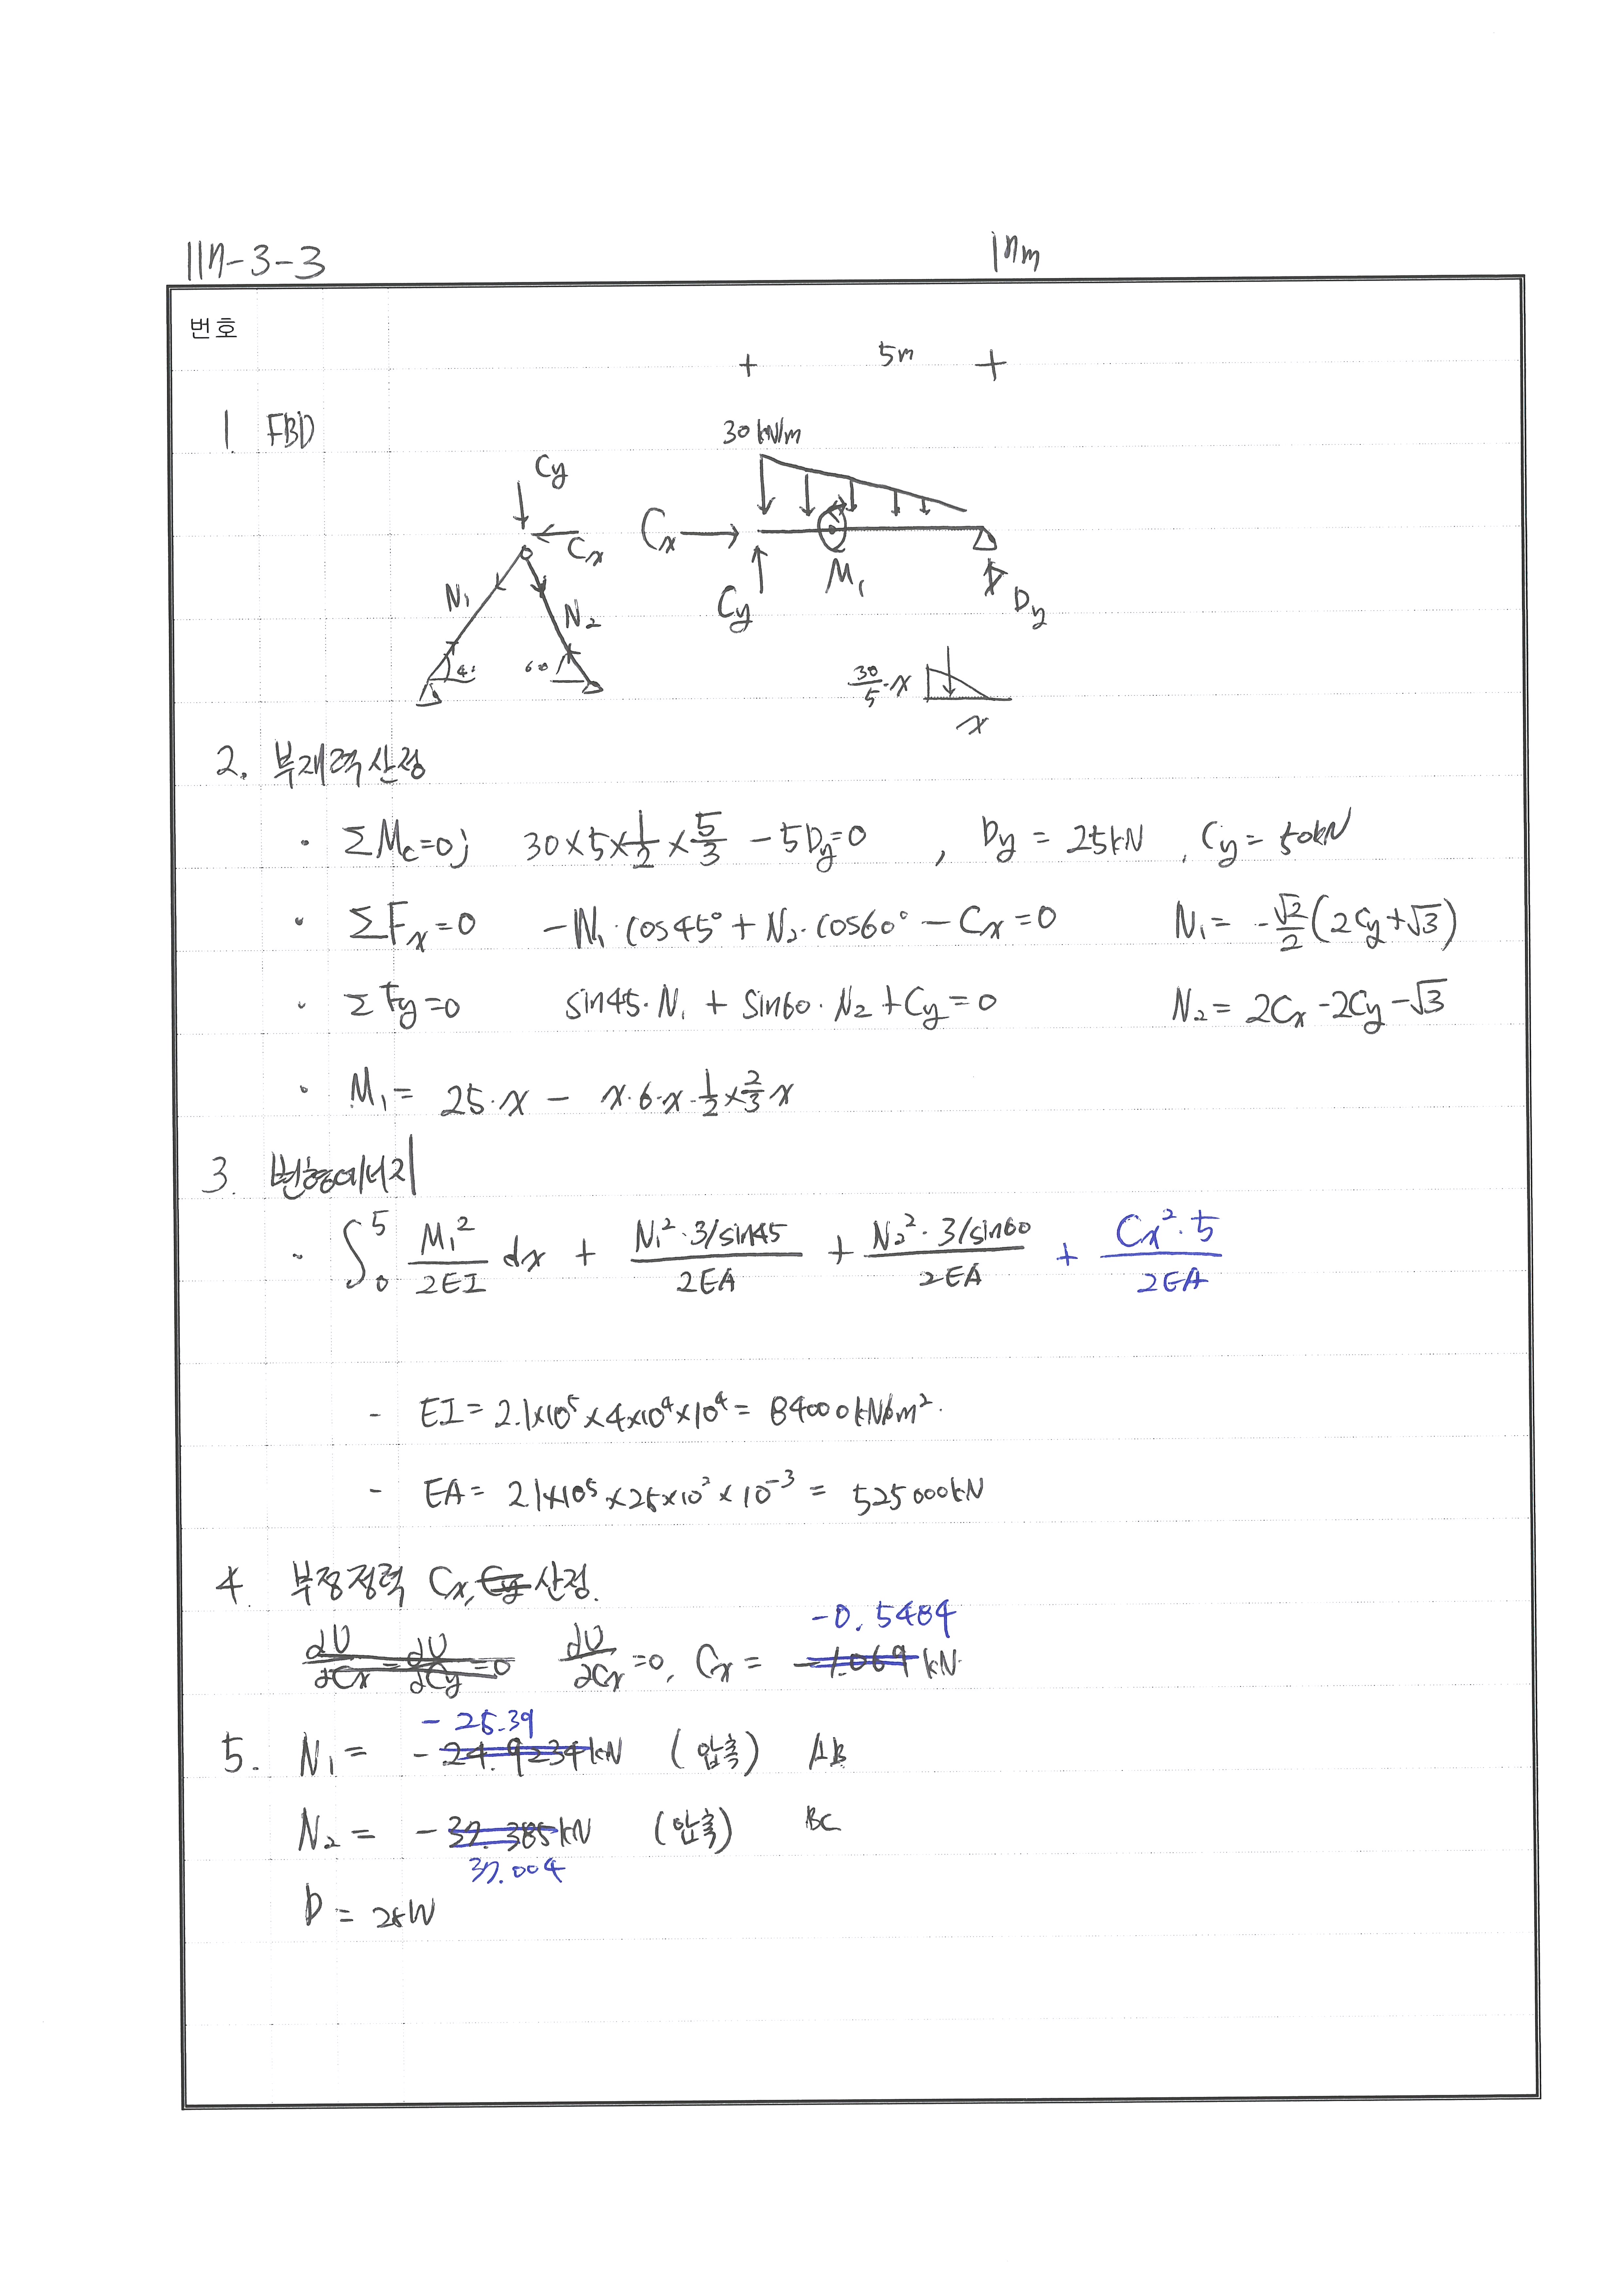 117-3-3
17m
번호
5m
1. FBD
30kN/m
Cy
Cx
Cx
N1
N2
Cy
M1
Dy
45
60
30/5·x
x
2. 부재력 산정
· ΣMc=0; 30×5×1/2×5/3 - 5Dy=0 , Dy = 25kN , Cy = 50kN
· ΣFx=0 -N1·cos45°+N2·cos60°-Cx=0 N1= -√2/2(2Cy+√3)
· ΣFy=0 sin45·N1 + sin60·N2+Cy=0 N2= 2Cx-2Cy-√3
· M1= 25·x - x·6·x·1/2×2/3x
3. 변형에너지
· ∫₀⁵ M1²/2EI dx + N1²·3/sin45/2EA + N2²·3/sin60/2EA + Cx²·5/2EA
- EI= 2.1×10⁵×4×10⁴×10⁴= 84000kN·m².
- EA= 2.1×10⁵×25×10²×10⁻³ = 525000kN
4. 부정정력 Cx, Cy 산정.
-0.5484
∂U/∂Cx = ∂U/∂Cy =0 ∂U/∂Cx =0, Cx = -1.069 kN.
-25.39
5. N1 = -24.9234kN (압축) AB
N2 = -37.385kN (압축) BC
37.004
D = 25kN